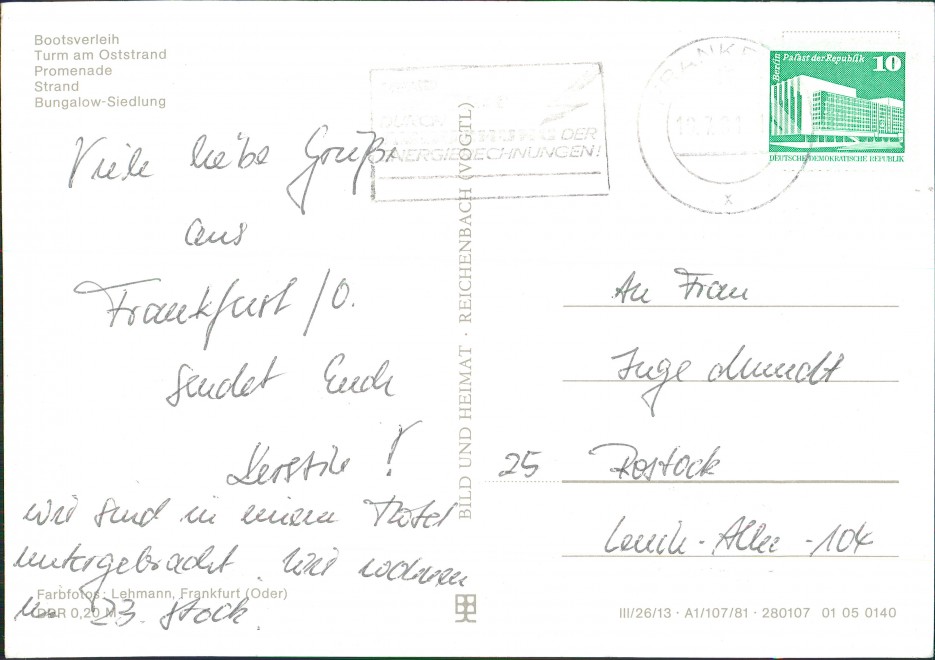 Bootsverleih
Turm am Oststrand
Promenade
Strand
Bungalow-Siedlung
Viele liebe Grüße
aus
Frankfurt /O.
sendet Euch
Kerstin !
wir sind in einem Hotel
untergebracht. Wir wohnen
im 23. Stock.
Farbfotos: Lehmann, Frankfurt (Oder)
DDR 0,20 M
BILD UND HEIMAT · REICHENBACH (VOGTL)
DURCH
DER
ENERGIERECHNUNGEN!
FRANKF
x
Berlin
Palast der Republik
10
DEUTSCHE DEMOKRATISCHE REPUBLIK
An Frau
Inge
25 Rostock
Allee - 104
III/26/13 · A1/107/81 · 280107 01 05 0140